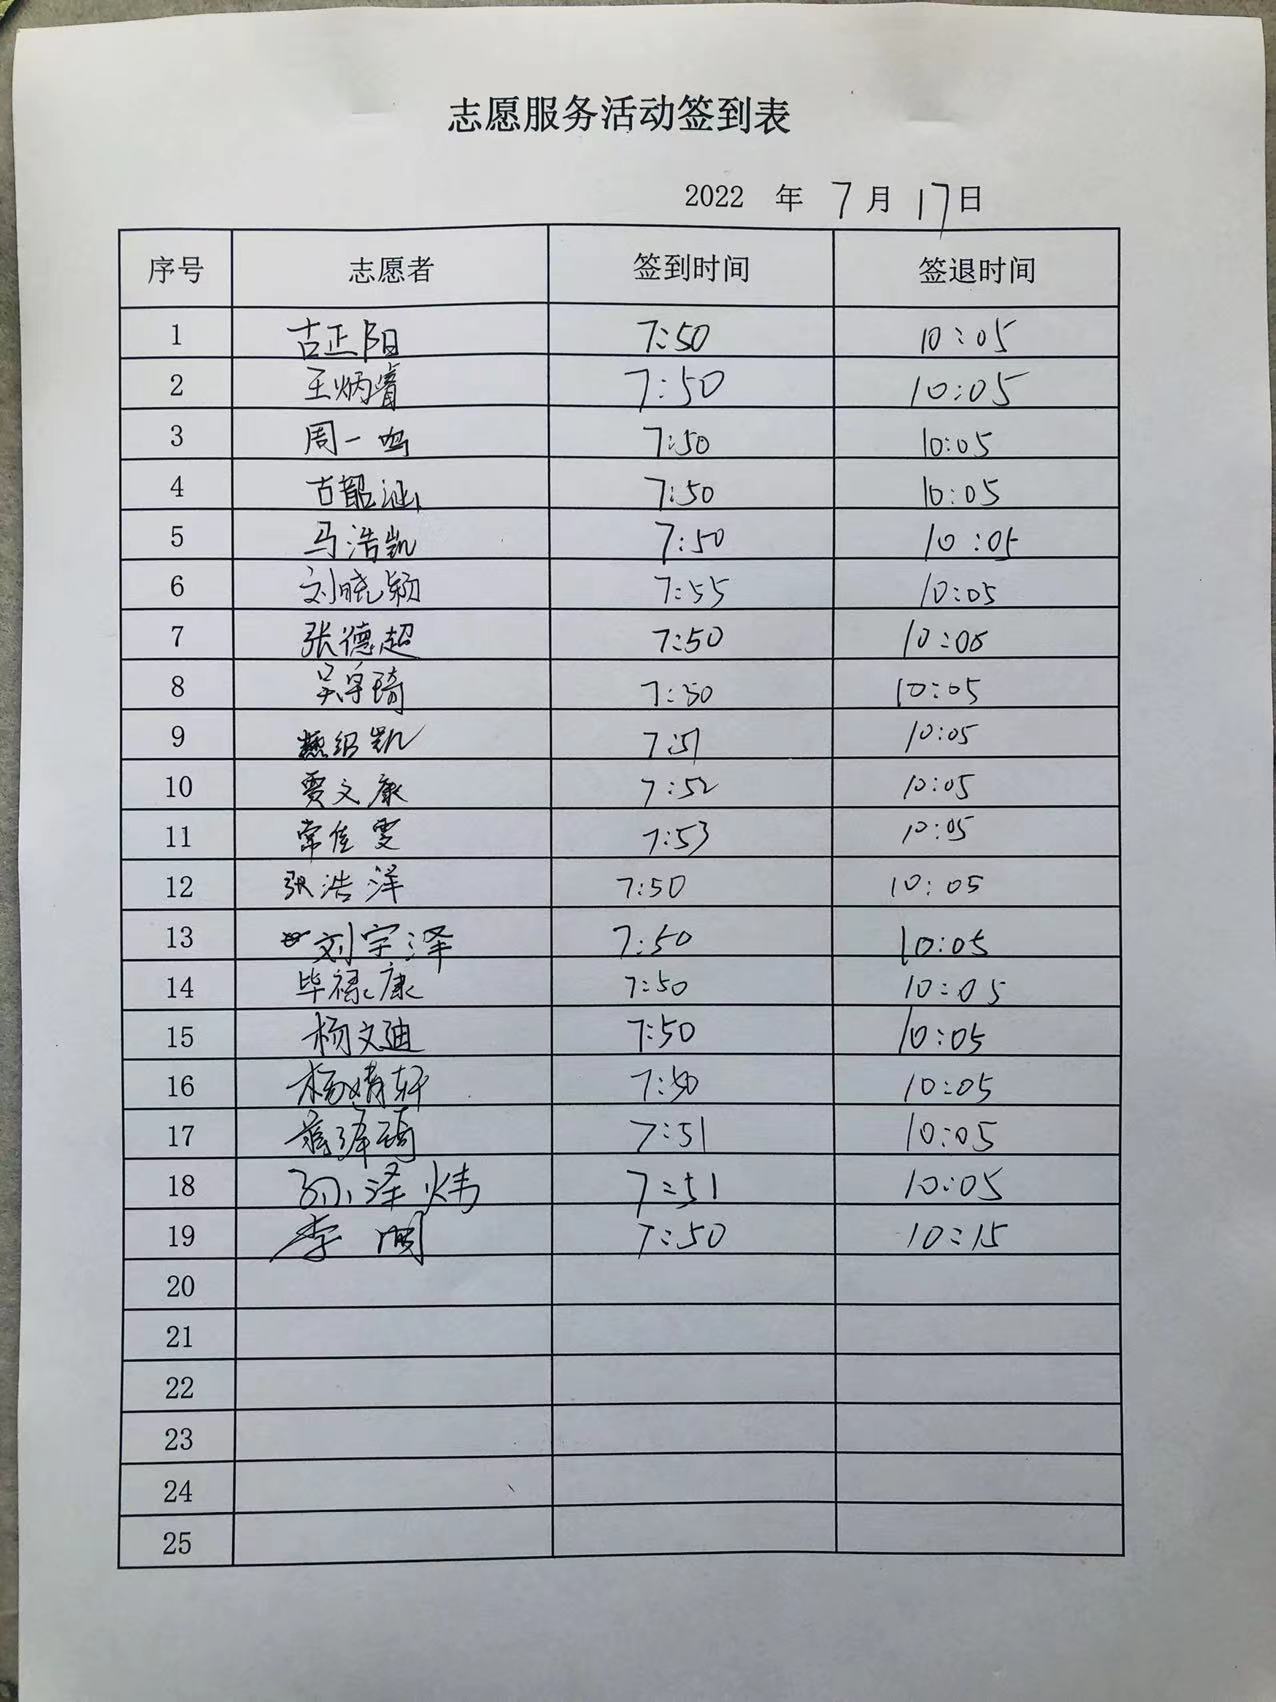 志愿服务活动签到表
2022 年 7月 17日
序号 志愿者 签到时间 签退时间
1 古正阳 7:50 10:05
2 王炳睿 7:50 10:05
3 周一鸣 7:50 10:05
4 古韶涵 7:50 10:05
5 马浩凯 7:50 10:05
6 刘晓颖 7:55 10:05
7 张德超 7:50 10:05
8 吴宇琦 7:50 10:05
9 7:51 10:05
10 贾文康 7:52 10:05
11 常佳雯 7:53 10:05
12 张浩洋 7:50 10:05
13 刘宇泽 7:50 10:05
14 毕禄康 7:50 10:05
15 杨文迪 7:50 10:05
16 杨婧轩 7:50 10:05
17 7:51 10:05
18 孙泽炜 7:51 10:05
19 李 7:50 10:15
20
21
22
23
24
25